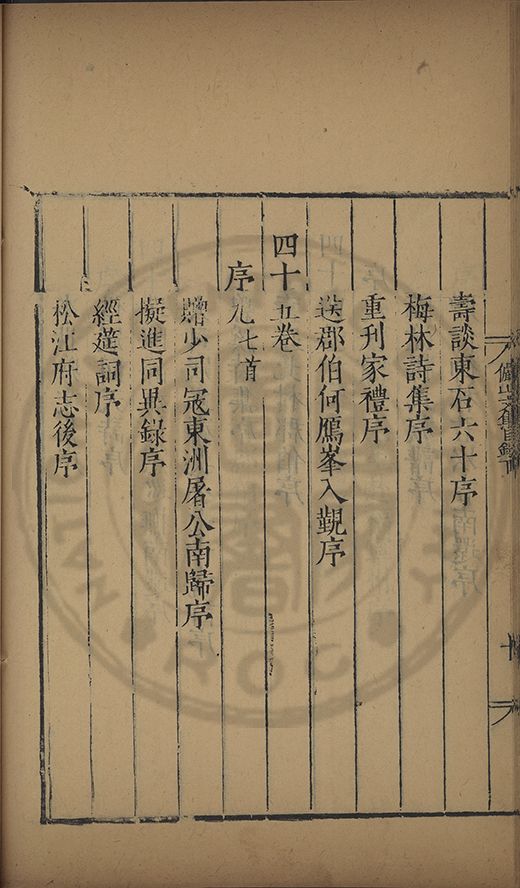 壽談東石六十序
梅林詩集序
重刊家禮序
送郡伯何鴈峯入覲序
四十五卷
序凡七首
贈少司寇東洲屠公南歸序
擬進同異録序
經筵詞序
松江府志後序